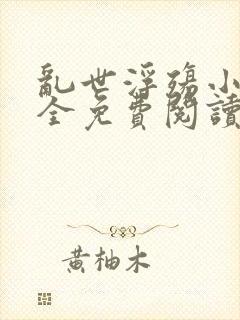 亂世浮殤小
全免費閱讀
黃柚木